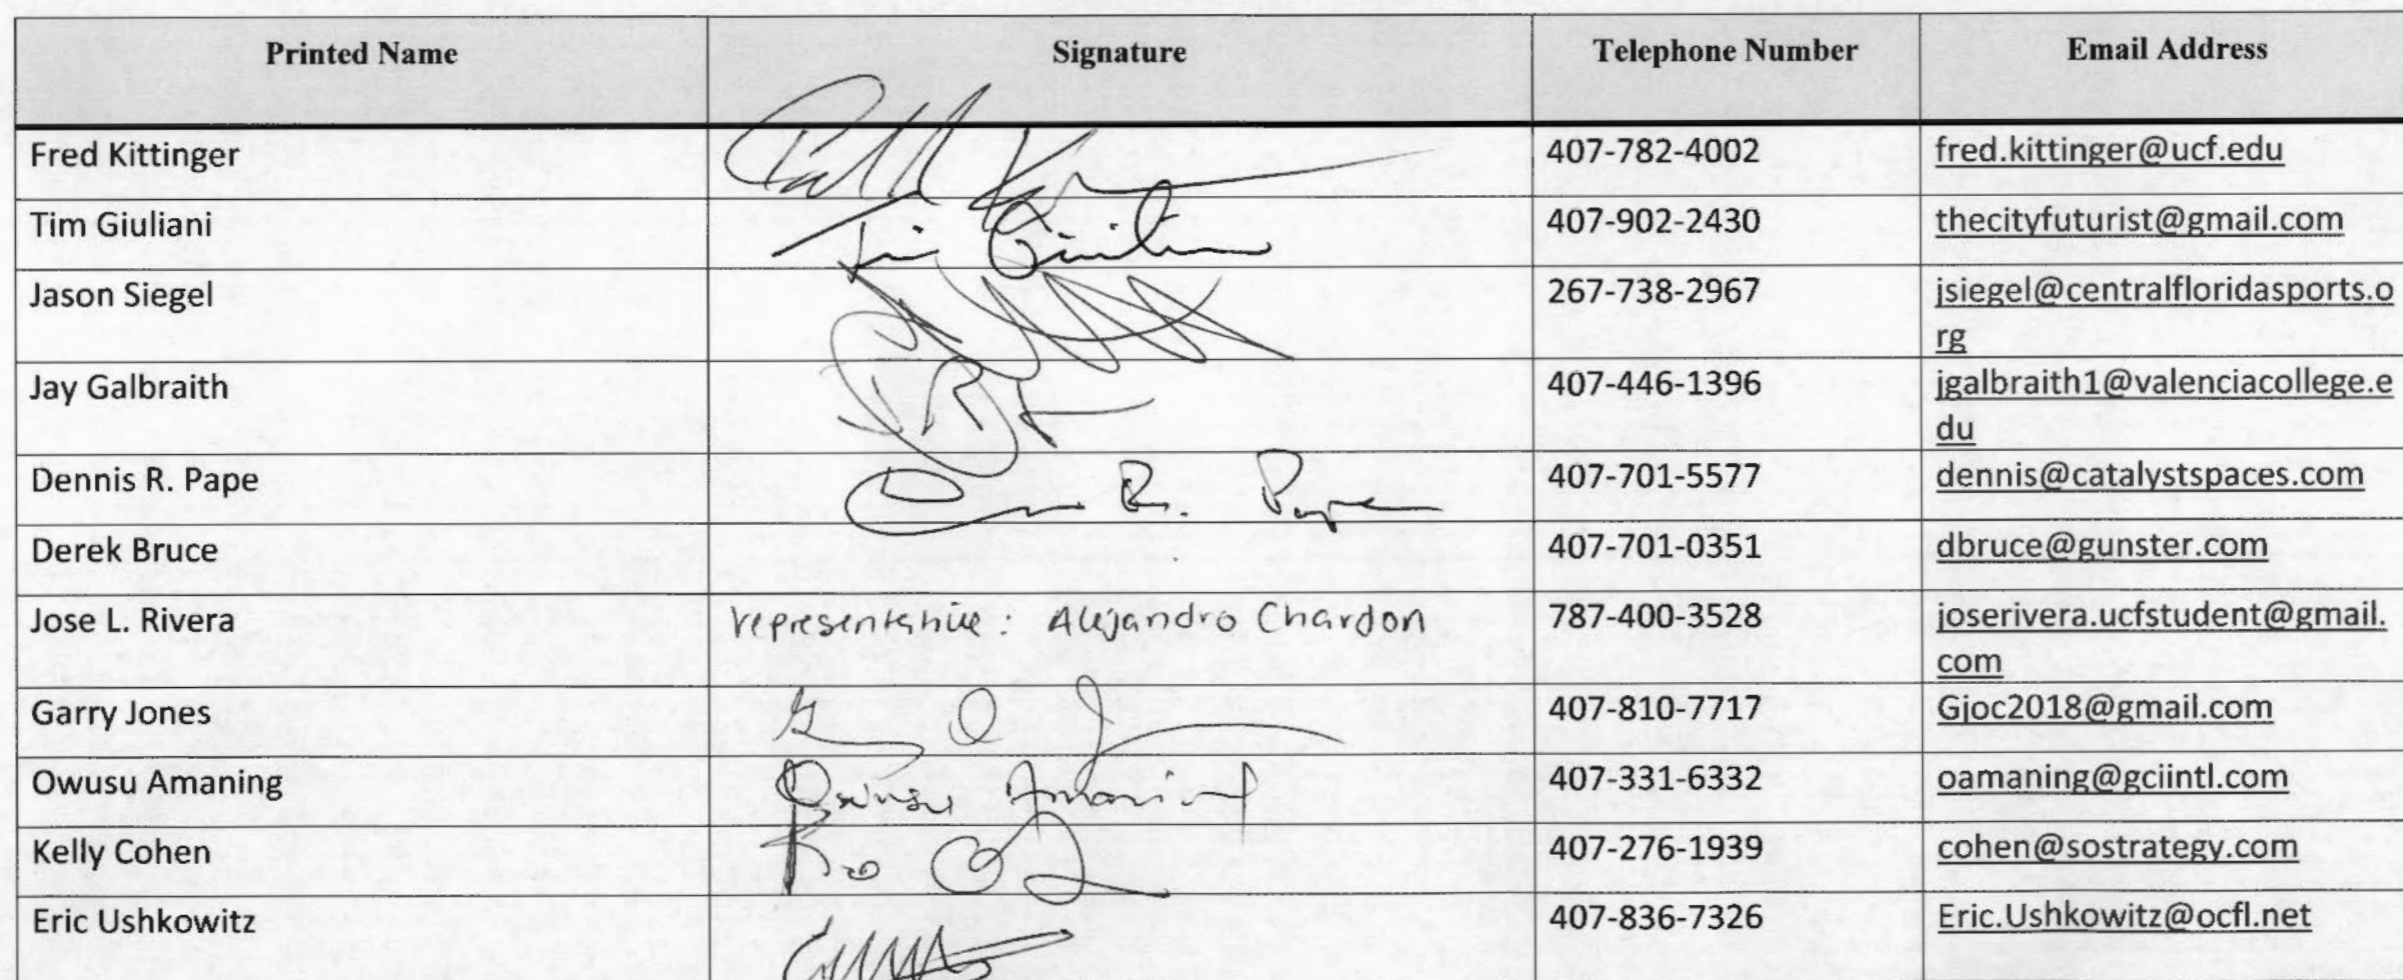 Printed Name Signature Telephone Number Email Address
Fred Kittinger 407-782-4002 fred.kittinger@ucf.edu
Tim Giuliani 407-902-2430 thecityfuturist@gmail.com
Jason Siegel 267-738-2967 jsiegel@centralfloridasports.o
rg
Jay Galbraith 407-446-1396 jgalbraith1@valenciacollege.e
du
Dennis R. Pape 407-701-5577 dennis@catalystspaces.com
Derek Bruce 407-701-0351 dbruce@gunster.com
Jose L. Rivera representative: Alejandro Chardon 787-400-3528 joserivera.ucfstudent@gmail.
com
Garry Jones 407-810-7717 Gjoc2018@gmail.com
Owusu Amaning Owusu Amaning 407-331-6332 oamaning@gciintl.com
Kelly Cohen 407-276-1939 cohen@sostrategy.com
Eric Ushkowitz 407-836-7326 Eric.Ushkowitz@ocfl.net